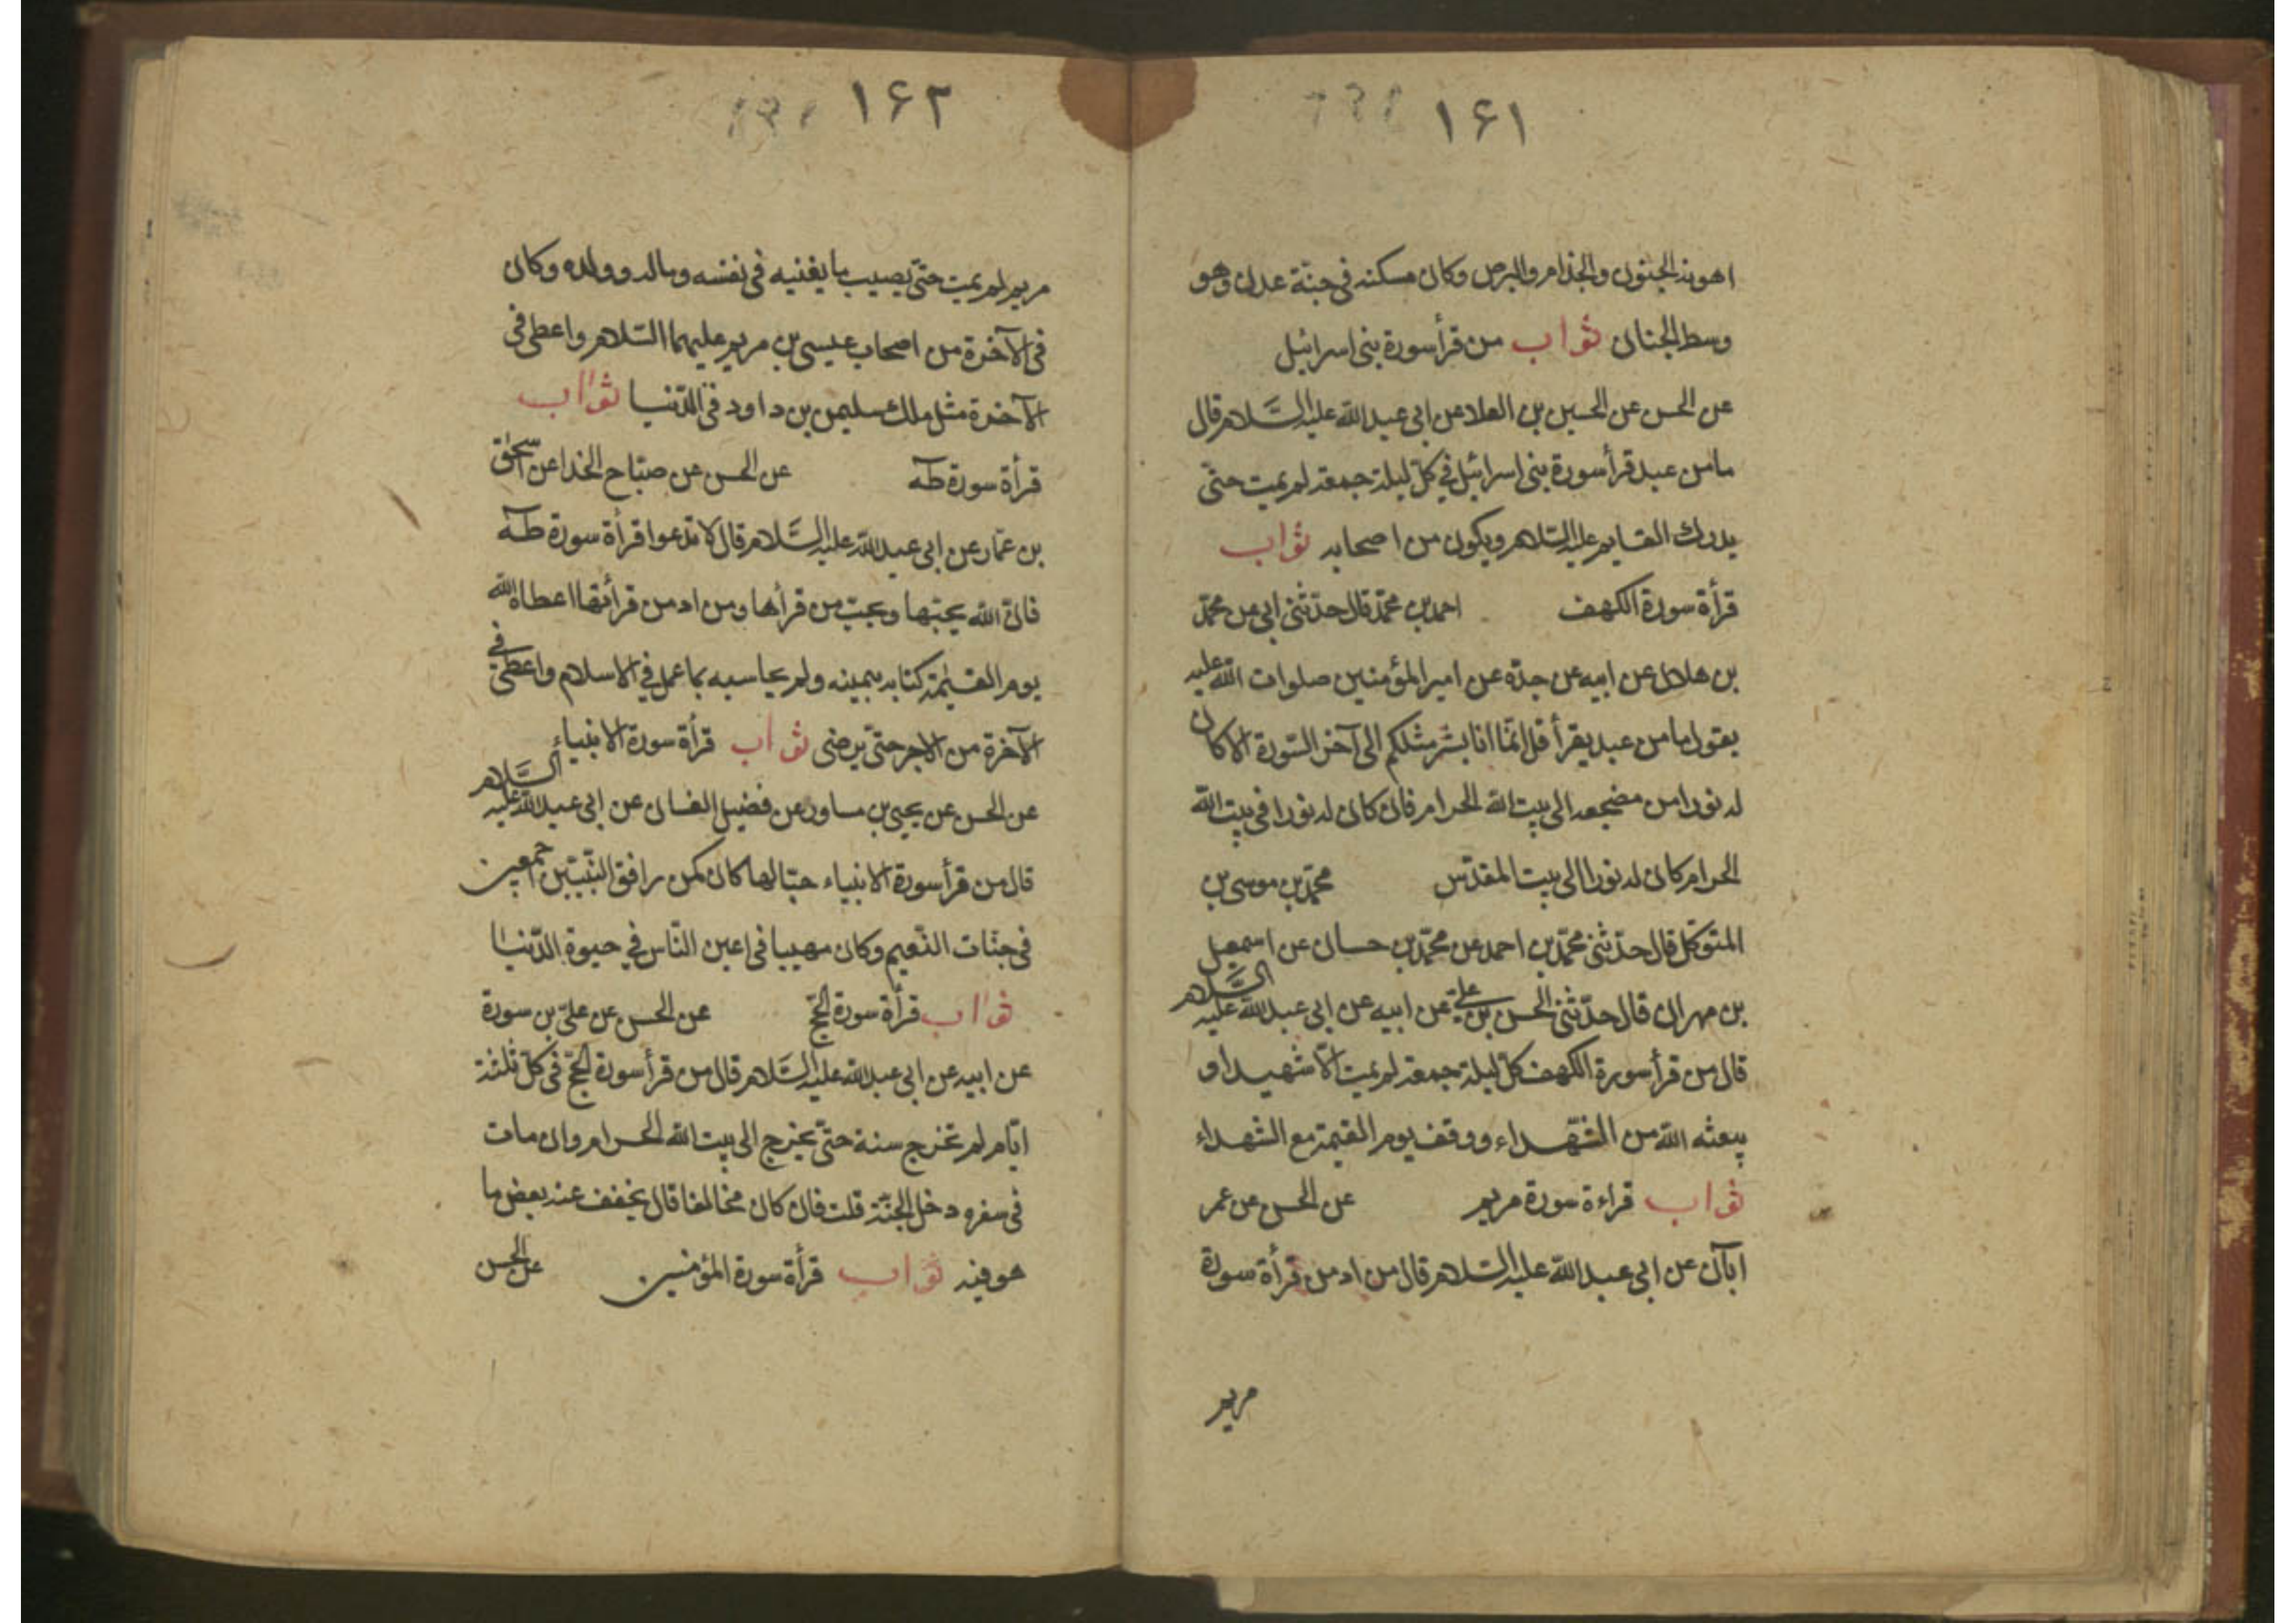 ۱۶۱
اهونه الجنون والجذام والبرص وكان مسكنه فى جنّة عدن وهو
وسط الجنان ثواب من قرأ سورة بنى اسرائيل
عن الحسن عن الحسين بن العلا عن ابى عبد الله عليه السَّلام قال
مامن عبد قرأ سورة بنى اسرائيل فى كلّ ليلة جمعة لم يمت حتّى
يدرك القايم عليه السّلام ويكون من اصحابه ثواب
قرأة سورة الكهف احمد بن محمّد قال حدّثنى ابى عن محمّد
بن هلال عن ابيه عن جدّه عن امير المؤمنين صلوات الله عليه
يقول مامن عبد يقرأ قل انّما انا بشر مثلكم الى آخر السّورة الا كان
له نورا من مضجعه الى بيت الله الحرام فان كان له نورا فى بيت الله
الحرام كان له نورا الى بيت المقدّس محمّد بن موسى بن
المتوكّل قال حدّثنى محمّد بن احمد عن محمّد بن حسان عن اسمعيل
بن مهران قال حدّثنى الحسن بن علىّ عن ابيه عن ابى عبد الله عليه السَّلام
قال من قرأ سورة الكهف كلّ ليلة جمعة لم يمت الّا شهيدا و
يبعثه الله من الشّهداء ووقف يوم القيمة مع الشهداء
ثواب قراءة سورة مريم عن الحسن عن عمر
ابآن عن ابى عبد الله عليه السّلام قال من ادمن قرأة سورة
مريم
۱۶۲
مريم لم يمت حتّى يصيب ما يغنيه فى نفسه وماله وولده وكان
فى الآخرة من اصحاب عيسى بن مريم عليهما السّلام واعطى فى
الآخرة مثل ملك سليمن بن داود فى الدّنيا ثواب
قرأة سورة طه عن الحسن عن صبّاح الخذا عن اسحق
بن عمّار عن ابى عبد الله عليه السَّلام قال لا تدعوا قرأة سورة طه
فانّ الله يحبّها ويحبّ من قرأها ومن ادمن قرأتها اعطاه الله
يوم القيٰمة كتابه بيمينه ولم يحاسبه بما عمل فى الاسلام واعطى فى
الآخرة من الاجر حتّى يرضى ثواب قرأة سورة الانبياء
عن الحسن عن يحيى بن مساور عن فضيل الغسان عن ابى عبد الله عليه السَّلام
قال من قرأ سورة الانبياء حبّا لها كان كمن رافق النّبيّين اجمعين
فى جنّات النّعيم وكان مهيبا فى اعين النّاس فى حيوة الدّنيا
ثواب قرأة سورة الحجّ عن الحسن عن علىّ بن سورة
عن ابيه عن ابى عبد الله عليه السَّلام قال من قرأ سورة الحجّ فى كلّ ثلثة
ايّام لم تخرج سنة حتّى يخرج الى بيت الله الحرام وان مات
فى سفره دخل الجنّة قلت فان كان مخالفا قال يخفف عنه بعض ما
هو فيه ثواب قرأة سورة المؤمنين عن الحسن